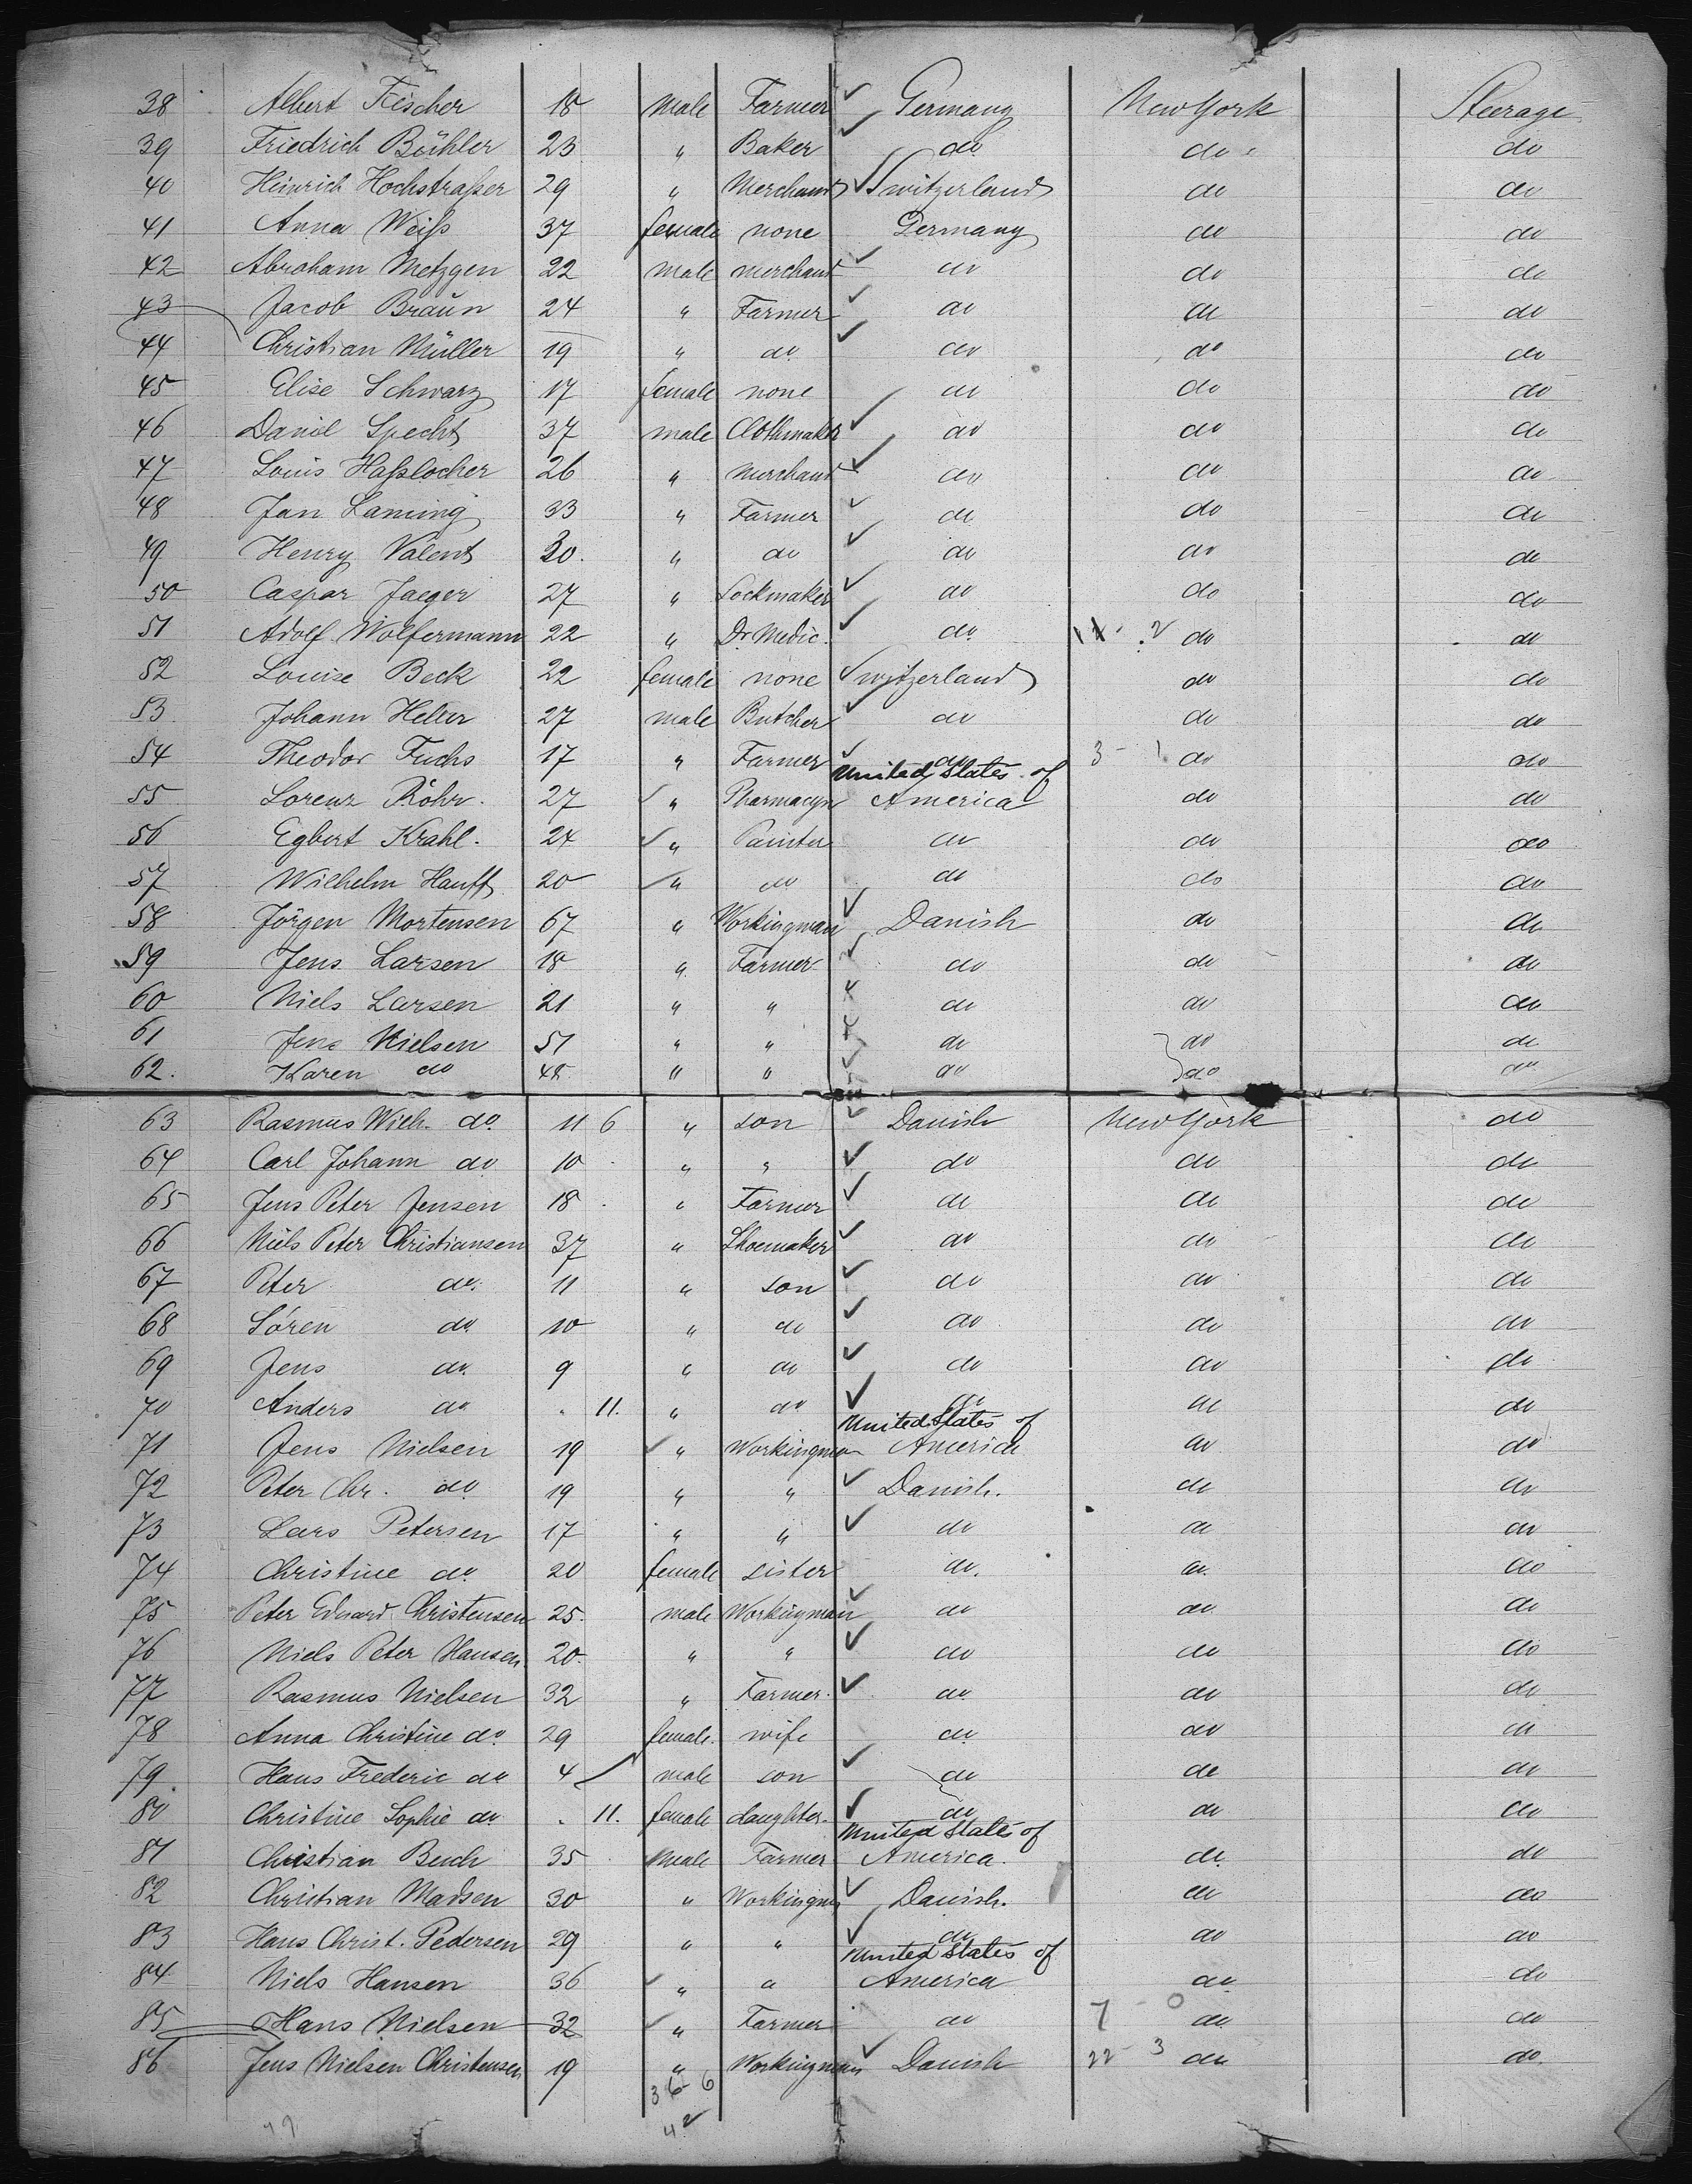 38 Albert Fischer 18 male Farmer Germany New York Steerage
39 Friedrich Bühler 23 " Baker do do do
40 Heinrich Hochstraßer 29 " Merchant Switzerland do do
41 Anna Weiß 37 female none Germany do do
42 Abraham Metzgen 22 male merchant do do do
43 Jacob Braun 24 " Farmer do do do
44 Christian Müller 19 " do do do do
45 Elise Schwarz 17 female none do do do
46 Daniel Specht 37 male Clothmaker do do do
47 Louis Haßlocher 26 " Merchant do do do
48 Jan Laming 33 " Farmer do do do
49 Henry Valent 30. " do do do do
50 Caspar Jaeger 27 " Lockmaker do do do
51 Adolf Wolfermann 22 " Dr. Medic. do do do
52 Louise Beck 22 female none Switzerland do do
53 Johann 27 male Butcher do do do
54 Theodor Fuchs 17 " Farmer do 3 - 1 do do
United States of
55 Lorenz Röhr. 27 " America do do
56 Egbert Krahl. 24 " Painter do do do
57 Wilhelm Hauff 20 " do do do do
58 Jörgen Mortensen 67 " Workingman Danish do do
59 Jens Larsen 18 " Farmer do do do
60 Niels Larsen 21 " " do do do
61 Jens Nielsen 51 " " do do do
62. Karen do 48 " " do do do
63 Rasmus Wilh. do 11 6 " son Danish New York do
64 Carl Johann do 10 " " do do do
65 Jens Peter Jensen 18 " Farmer do do do
66 Niels Peter Christiansen 37 " Shoemaker do do do
67 Peter do. 11 " son do do do
68 Sören do 10 " do do do do
69 Jens do. 9 " do do do do
70 Anders do " 11. " do do do do
United States of
71 Jens Nielsen 19 " Workingman America do do
72 Peter Chr. do 19 " " Danish. do do
73 Lars Petersen 17 " " do do do
74 Christine do 20 female sister do. do. do
75 Peter Eduard Christensen 25. male Workingman do do do
76 Niels Peter Hansen 20. " " do do do
77 Rasmus Nielsen 32 " Farmer. do do do
78 Anna Christine do 29 female. wife do do do
79. Hans Frederic do 4 male son do do do
80 Christine Sophie do " 11. female daughter. do do do
United States of
81 Christian 35 male Farmer America. do do
82 Christian Madsen 30 " Workingman Danish. do do
83 Hans Christ. Pedersen 29 " " do do do
United States of
84 Niels Hansen 36 " " America do do
85 Hans Nielsen 32 " Farmer do 7 - 0 do do
86 Jens Nielsen Christensen 19 " Workingman Danish 22 - 3 do do.